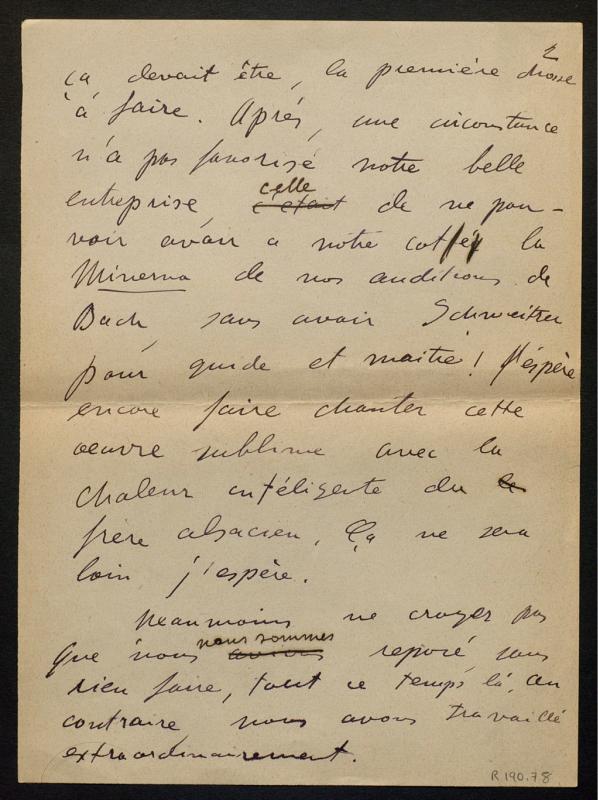 2
ça devait être, la première chosse
à faire. Après, une circonstance
n'a pas favorisé notre belle
entreprise, celle c'était de ne pou-
voir avoir a notre la
Minerva de nos auditions de
Bach, sans avoir Schweitzer
pour guide et maitre! J'espère
encore faire chanter cette
oeuvre sublime avec la
chaleur inteligente du le
frère alsacien. Ça ne sera
loin j'espère.
Neanmoins ne croyez pas
que nous nous sommes avions reposé sans
rien faire, tout ce temps là, au
contraire nous avons travaillé
extraordinairement.
R 190.78